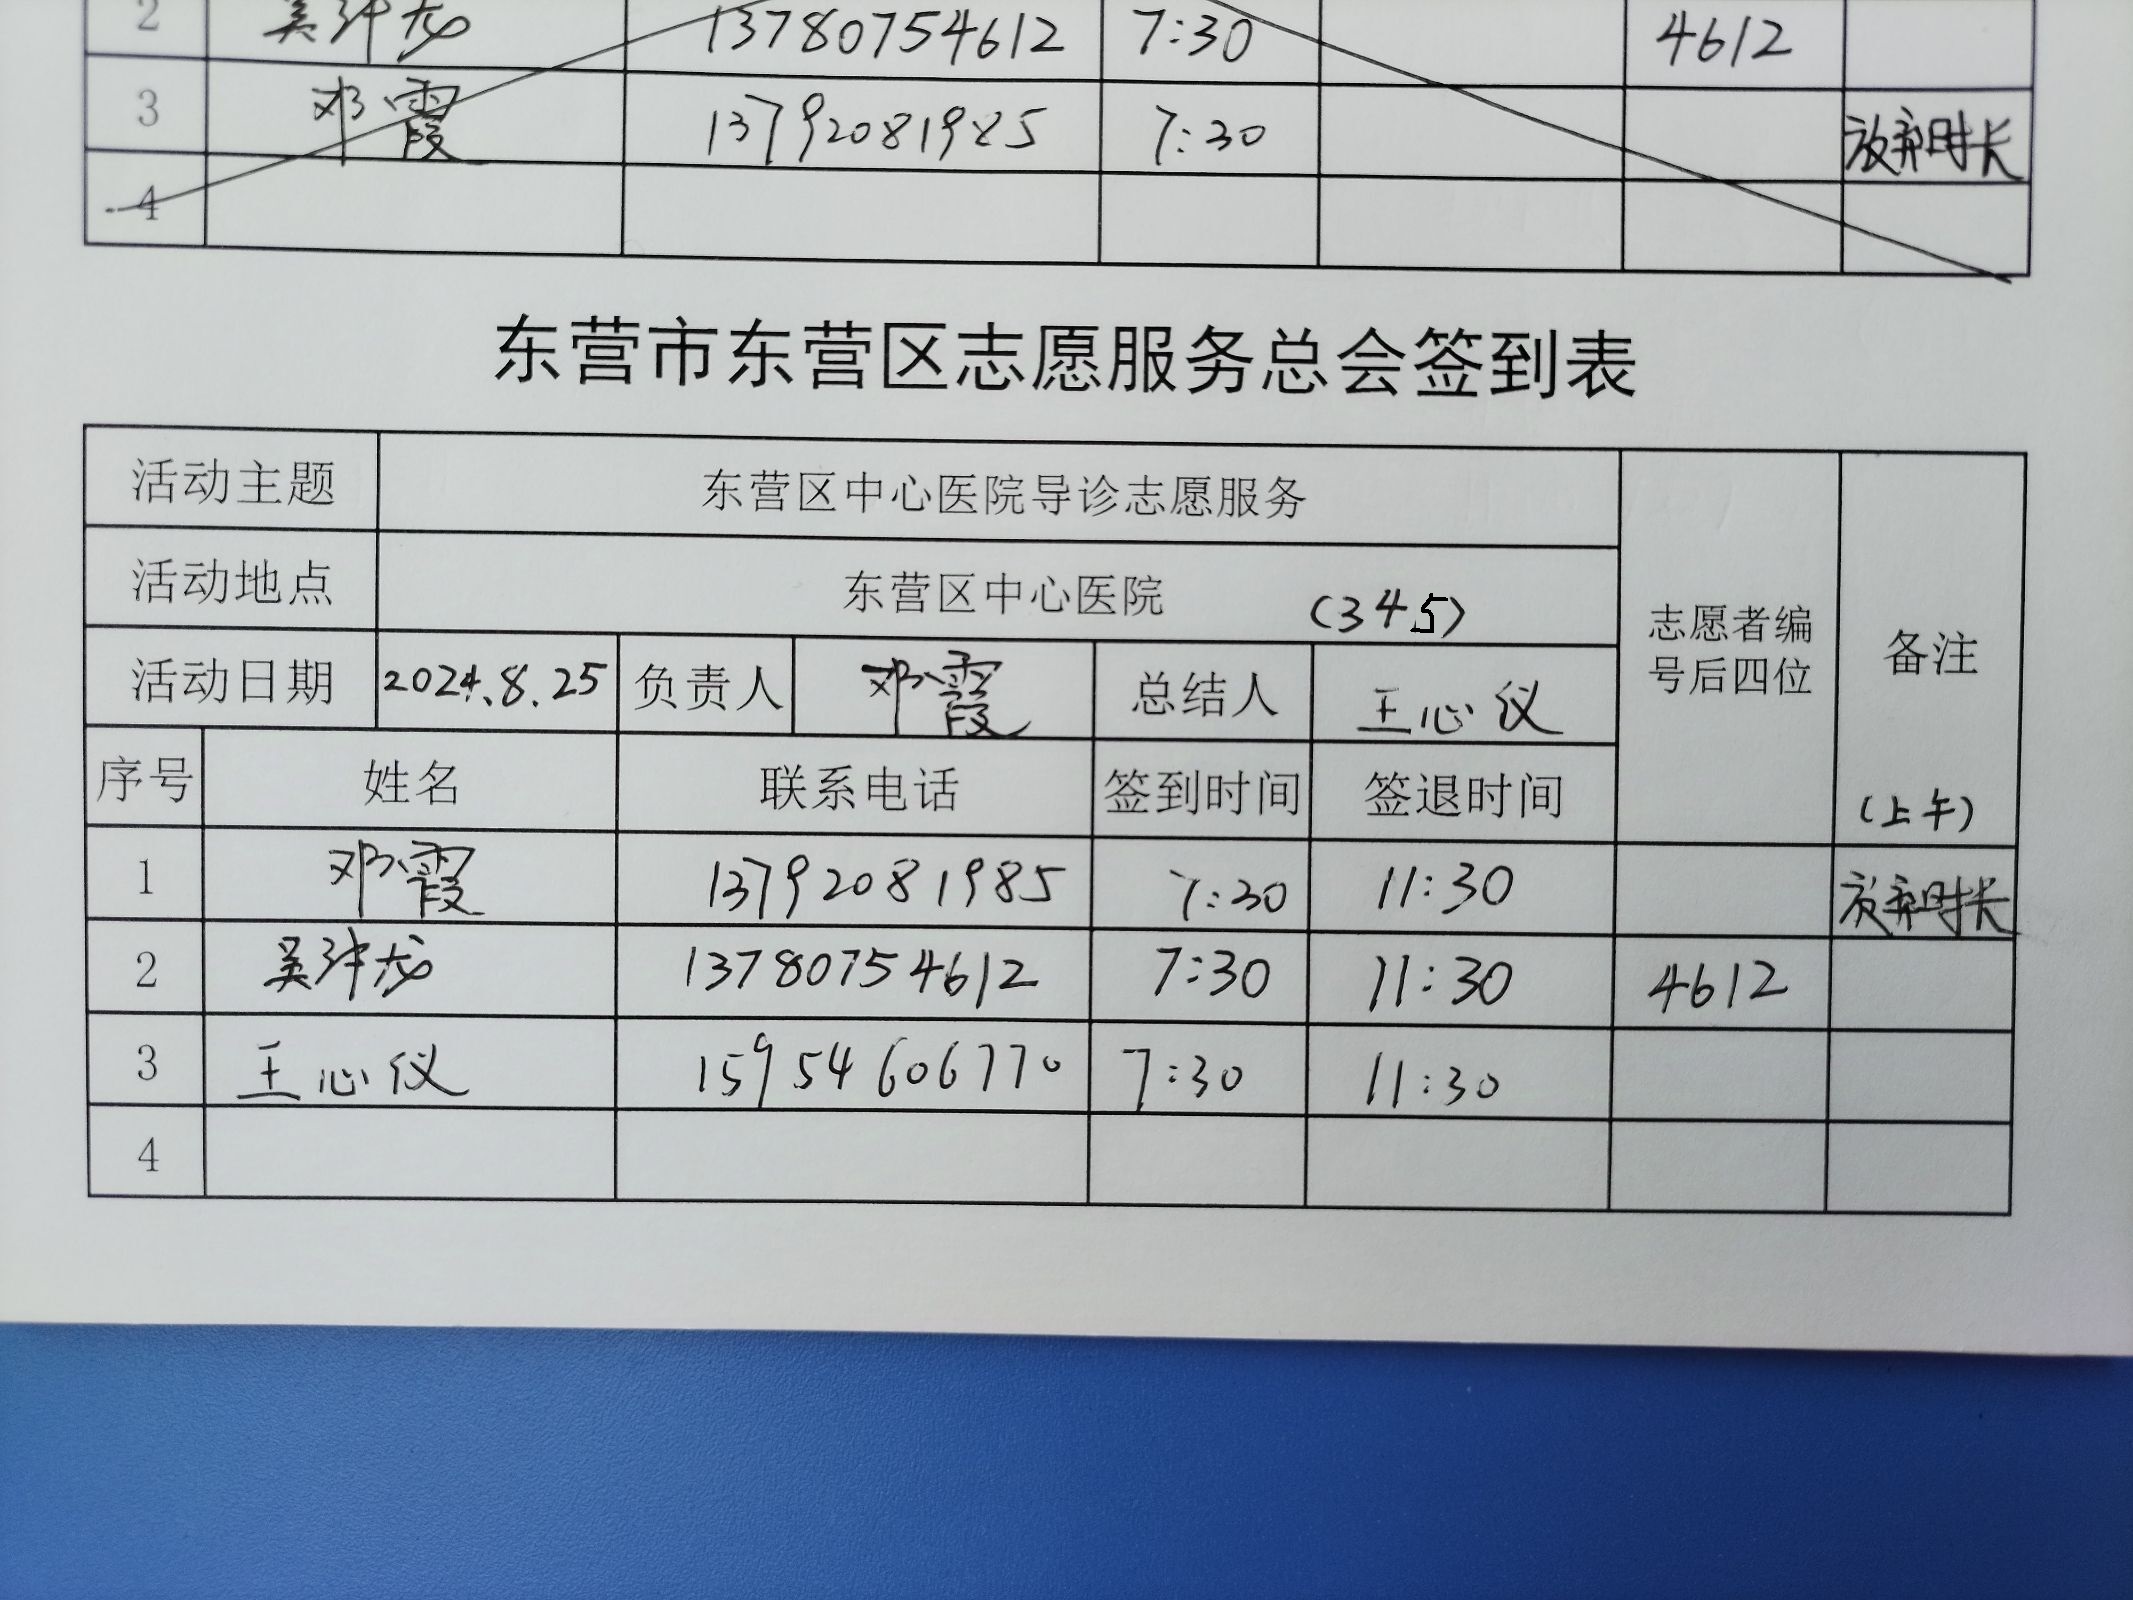 2 吴沣龙 13780754612 7:30 4612
3 邓霞 13792081985 7:30 放弃时长
4
东营市东营区志愿服务总会签到表
活动主题 东营区中心医院导诊志愿服务
活动地点 东营区中心医院 (345) 志愿者编号后四位 备注
活动日期 2024.8.25 负责人 邓霞 总结人 王心仪
序号 姓名 联系电话 签到时间 签退时间 (上午)
1 邓霞 13792081985 7:30 11:30 放弃时长
2 吴沣龙 13780754612 7:30 11:30 4612
3 王心仪 15954606770 7:30 11:30
4